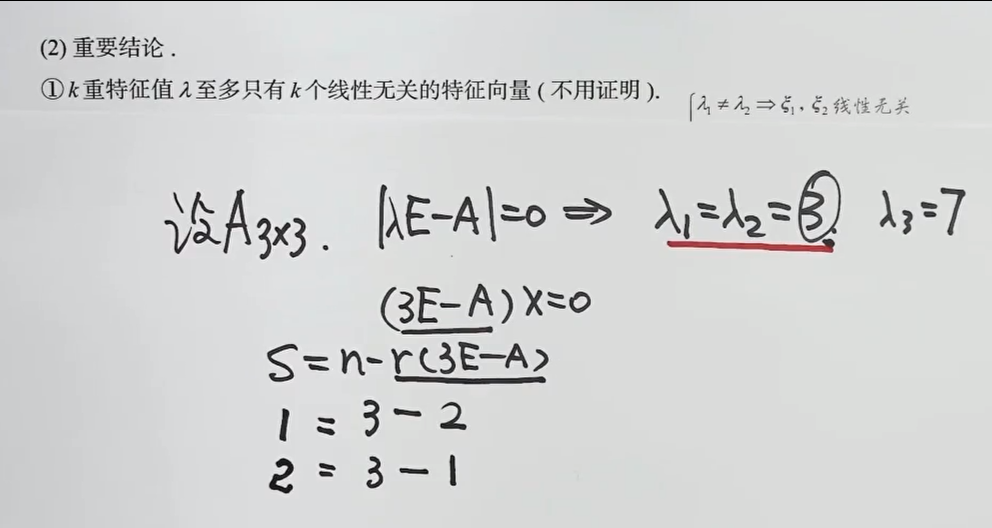 (2) 重要结论.
①k重特征值λ至多只有k个线性无关的特征向量(不用证明).
{λ₁≠λ₂⇒ξ₁,ξ₂线性无关
设A₃ₓ₃. |λE-A|=0⇒ λ₁=λ₂=3. λ₃=7
(3E-A)X=0
S=n-r(3E-A)
1=3-2
2=3-1